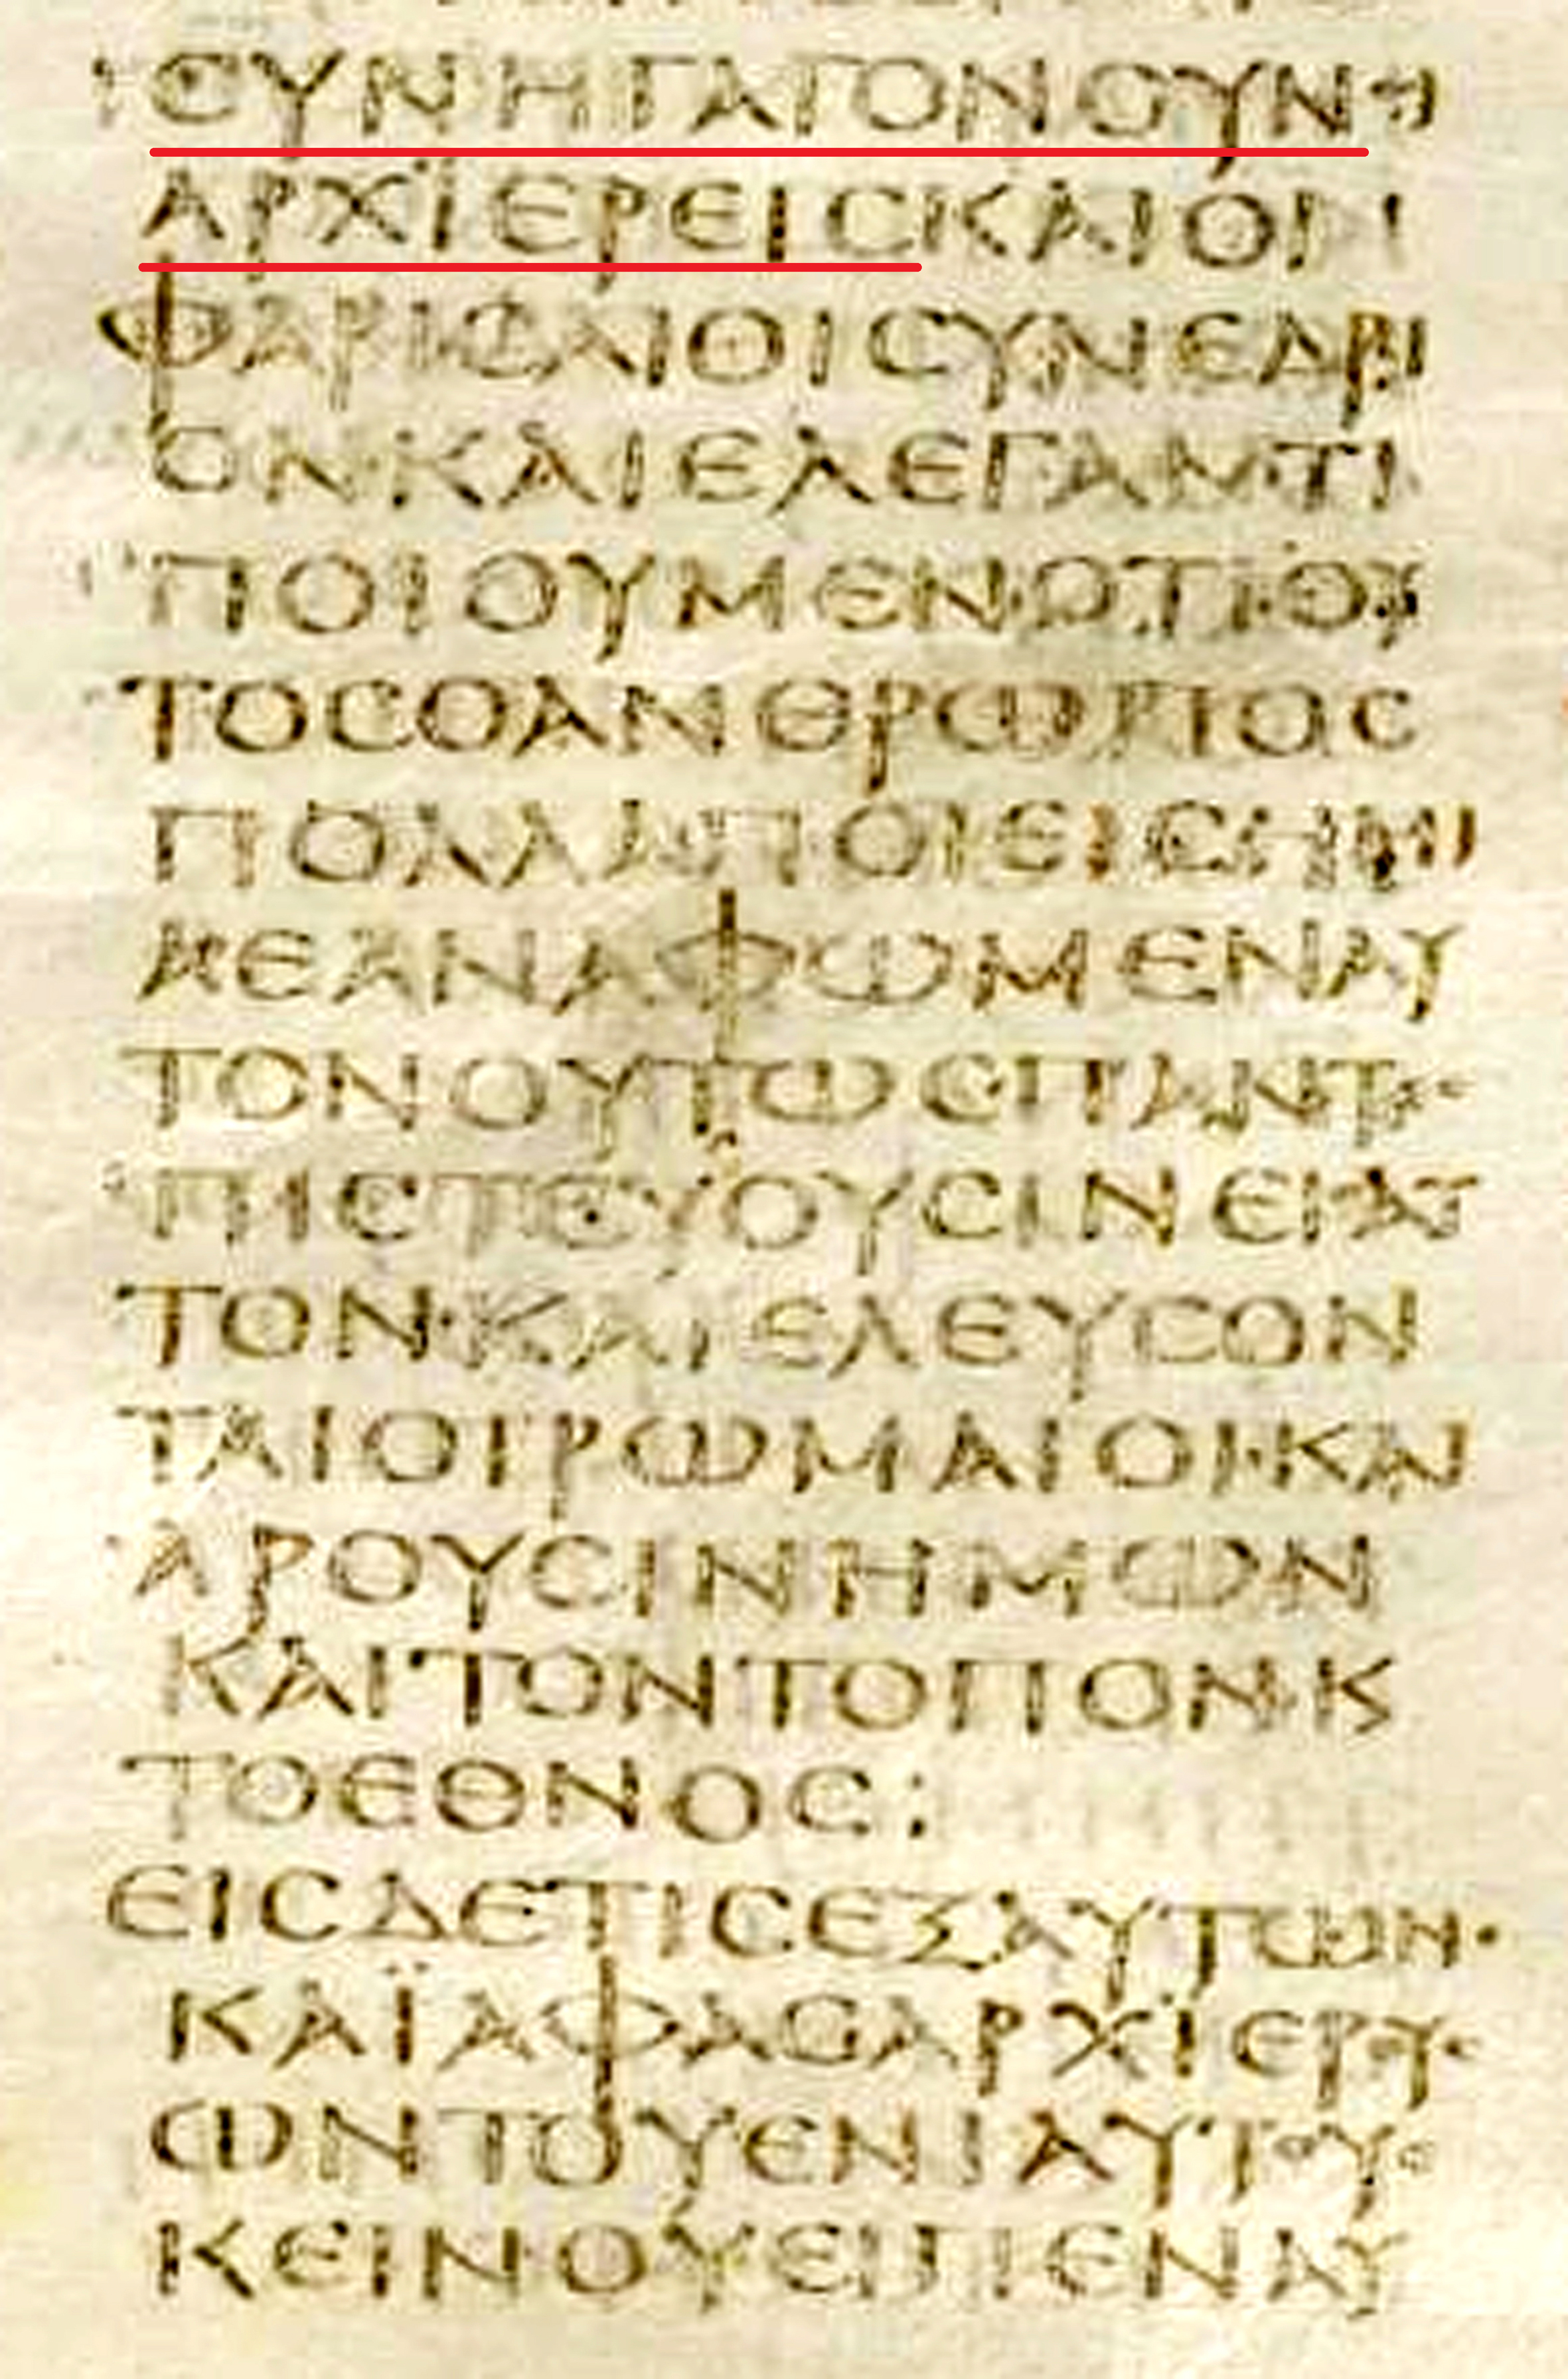 ϹΥΝΗΓΑΓΟΝΟΥΝΟΙ
ΑΡΧΪΕΡΕΙϹΚΑΙΟΙ
ΦΑΡΙϹΑΙΟΙϹΥΝΕΔΡΙ
ΟΝΚΑΙΕΛΕΓΑΝΤΙ
ΠΟΙΟΥΜΕΝΟΤΙΟΥ
ΤΟϹΟΑΝΘΡΩΠΟϹ
ΠΟΛΛΑΠΟΙΕΙϹΗΜΙ
ΑΕΑΝΑΦΩΜΕΝΑΥ
ΤΟΝΟΥΤΩϹΠΑΝΤΕϹ
ΠΙϹΤΕΥΟΥϹΙΝΕΙϹΑΥ
ΤΟΝ·ΚΑΙΕΛΕΥϹΟΝ
ΤΑΙΟΙΡΩΜΑΙΟΙ·ΚΑΙ
ΑΡΟΥϹΙΝΗΜΩΝ
ΚΑΙΤΟΝΤΟΠΟΝΚ
ΤΟΕΘΝΟϹ:
ΕΙϹΔΕΤΙϹΕΞΑΥΤΩΝ·
ΚΑΪΑΦΑϹΑΡΧΪΕΡΕΥϹ
ΩΝΤΟΥΕΝΙΑΥΤΟΥΕ
ΚΕΙΝΟΥΕΙΠΕΝΑΥ